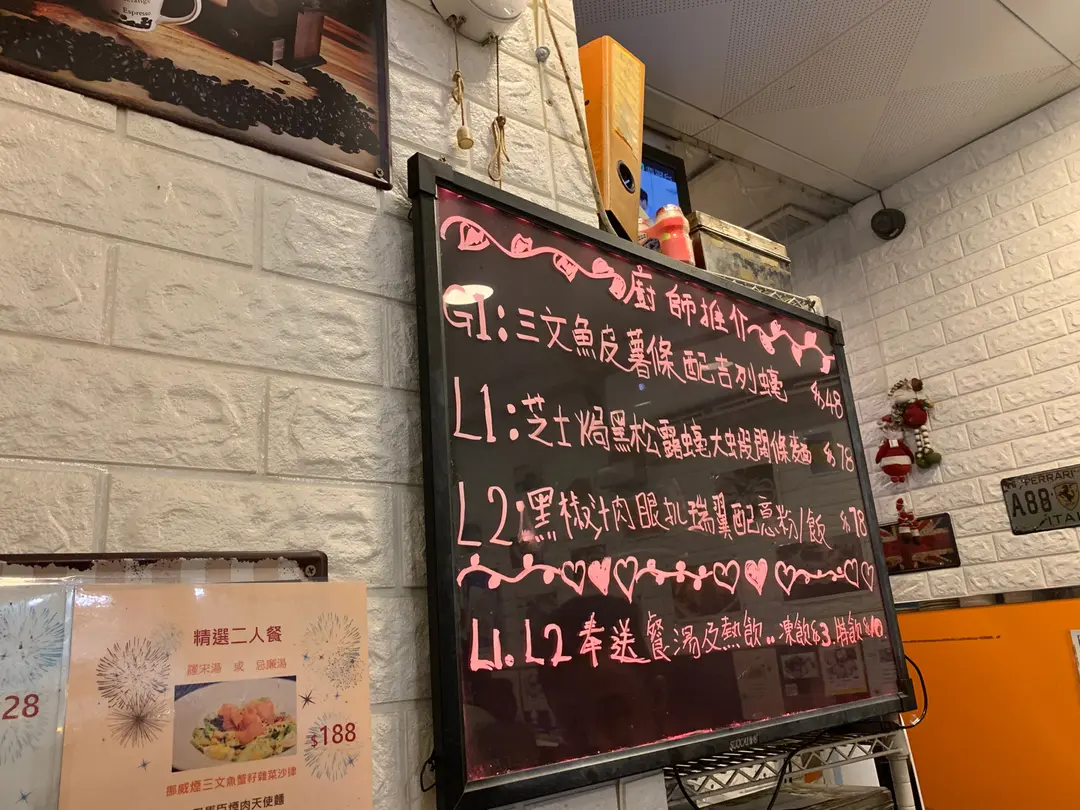 Espresso
廚師推介
G1:三文魚皮薯條配吉列蠔 $48
L1:芝士焗黑松露蠔大蝦闊條麵 $78
L2:黑椒汁肉眼扒瑞翼配意粉/飯 $78
L1.L2奉送餐湯及熱飲..凍飲$3.特飲$10.
28
精選二人餐
羅宋湯 或 忌廉湯
$188
挪威煙三文魚蟹籽雜菜沙律
煙肉天使麵
FERRARI
A88
ITAL